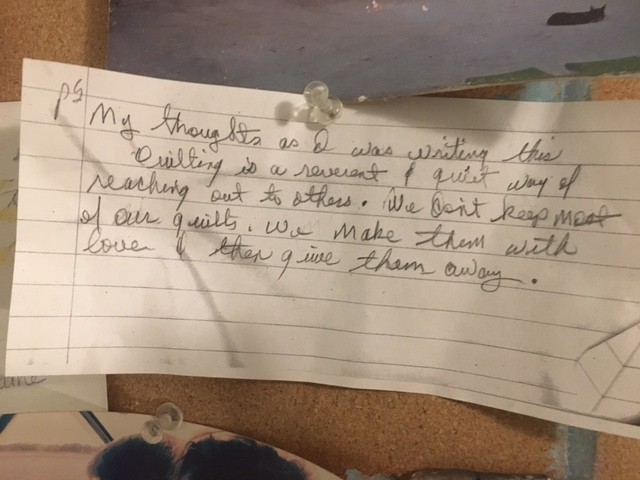 ps
My thoughts as I was writing this
Quilting is a reverent & quiet way of
reaching out to others. We Don't keep most
of our quilts. We make them with
love & then give them away.